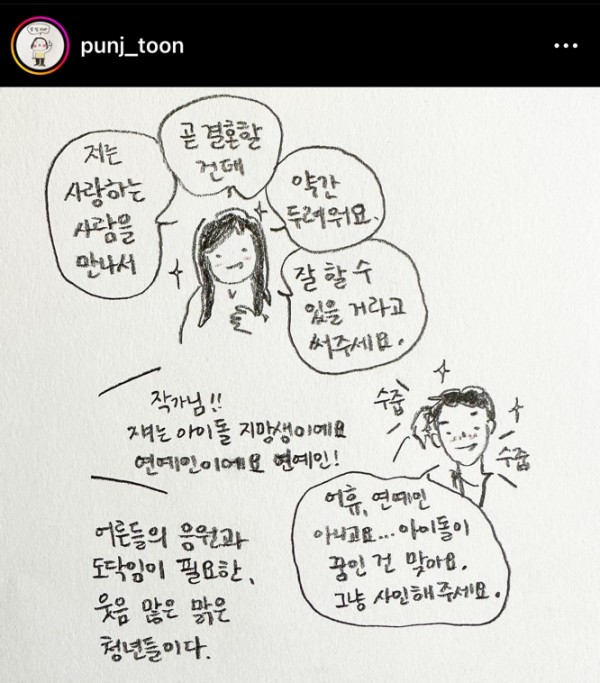 punj_toon
저는
사랑하는
사람을
만나서
곧 결혼할
건데
약간
두려워요.
잘 할 수
있을 거라고
써주세요.
작가님!!
쟤는 아이돌 지망생이에요
연예인이에요 연예인!
수줍
수줍
어휴, 연예인
아니고요... 아이돌이
꿈인 건 맞아요.
그냥 사인해주세요.
어른들의 응원과
도닥임이 필요한,
웃음 많은 맑은
청년들이다.